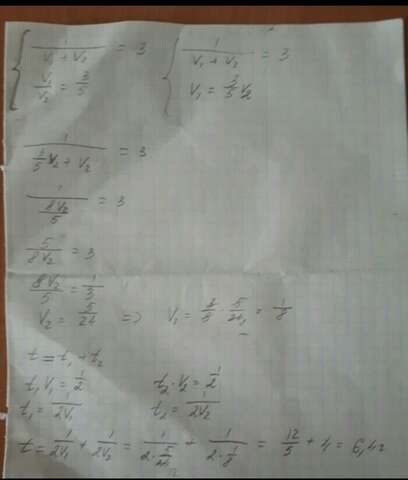 { 1/(V₁ + V₂) = 3   { 1/(V₁ + V₂) = 3
V₁/V₂ = 3/5   V₁ = 3/5 V₂
1/(3/5 V₂ + V₂) = 3
1/(8V₂/5) = 3
5/(8V₂) = 3
8V₂/5 = 1/3
V₂ = 5/24 => V₁ = 3/5 · 5/24 = 1/8
t = t₁ + t₂
t₁V₁ = 1/2   t₂·V₂ = 1/2
t₁ = 1/(2V₁)   t₂ = 1/(2V₂)
t = 1/(2V₁) + 1/(2V₂) = 1/(2·5/24) + 1/(2·1/8) = 12/5 + 4 = 6,4ч